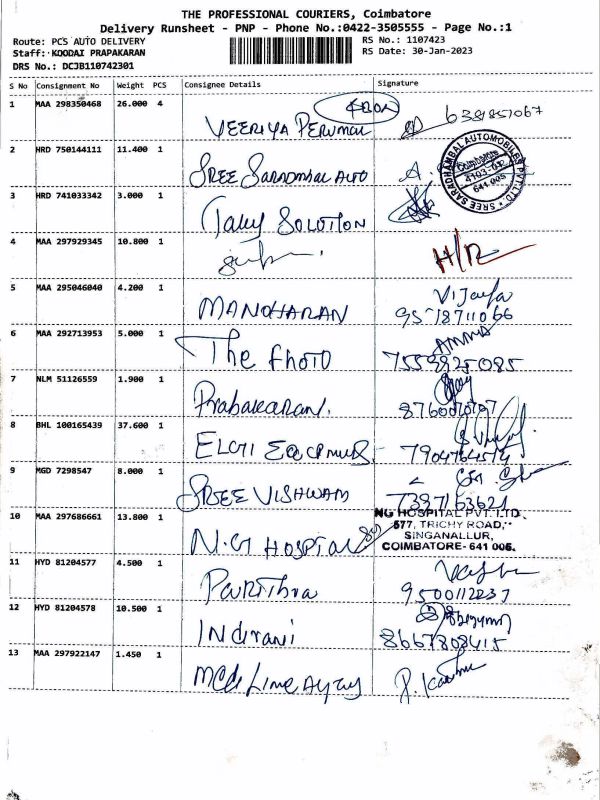 THE PROFESSIONAL COURIERS, Coimbatore
Delivery Runsheet - PNP - Phone No.:0422-3505555 - Page No.:1
Route: PCS AUTO DELIVERY RS No.: 1107423
Staff: KOODAI PRAPAKARAN RS Date: 30-Jan-2023
DRS No.: DCJB110742301
S No Consignment No Weight PCS Consignee Details Signature
1 MAA 298350468 26.000 4
VEERIYA PERUMAL 6381851067
2 HRD 750144111 11.400 1
SREE SARADMBAL AUTO
SREE SARADHAMBAL AUTOMOBILES PVT LTD
641 005
3 HRD 741033342 3.000 1
Tally SOLUTION
4 MAA 297929345 10.800 1
5 MAA 295046040 4.200 1 Vijaya
MANOHARAN 9578711066
6 MAA 292713953 5.000 1 AMMA
The PHOTO 7559925085
7 NLM 51126559 1.900 1
Prabakaran.
8 BHL 100165439 37.600 1
ELGI 7904764574
9 MGD 7298547 8.000 1
SREE VISHWAM 7397163621
10 MAA 297686661 13.800 1 NG HOSPITAL PVT. LTD.
577, TRICHY ROAD,
SINGANALLUR,
N.G HOSPITAL COIMBATORE- 641 005.
11 HYD 81204577 4.500 1
Pavithra 9500112237
12 HYD 81204578 10.500 1
Indirani 8667808415
13 MAA 297922147 1.450 1